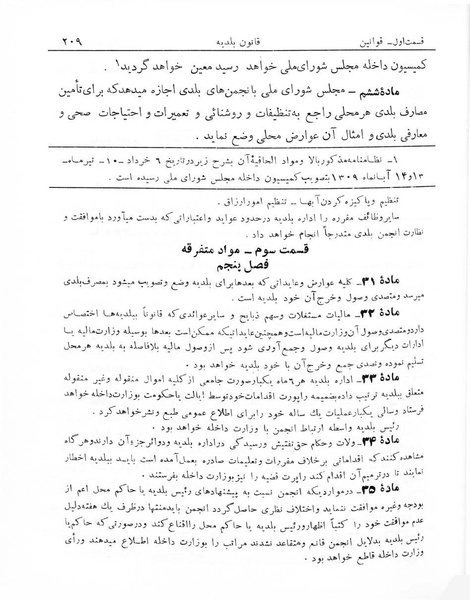 قسمت اول ـ قوانین قانون بلدیه ۲۰۹
کمیسیون داخله مجلس شورای ملی خواهد رسید معین خواهد گردید۱ .
مادهٔ ششم ـ مجلس شورای ملی بانجمن های بلدی اجازه میدهد که برای تأمین
مصارف بلدی هر محلی راجع به تنظیفات و روشنائی و تعمیرات و احتیاجات صحی و
معارفی بلدی و امثال آن عوارض محلی وضع نماید .
۱ـ نظامنامه مذکور بالا و مواد الحاقیهٔ آن بشرح زیر در تاریخ ۶ خرداد ـ ۱۰ـ تیر ماه ـ
۱۳ و ۱۴ آبانماه ۱۳۰۹ بتصویب کمیسیون داخله مجلس شورای ملی رسیده است .
تنظیم و پاکیزه کردن آبها ـ تنظیم امور ارزاق .
سایر وظائف مقرره را اداره بلدیه در حدود عواید و اعتباراتی که بدست میآورد با موافقت و
نظارت انجمن بلدی متدرجاً انجام خواهد داد .
قسمت سوم ـ مواد متفرقه
فصل پنجم
مادهٔ ۳۱ـ کلیه عوارض و عایداتی که بعدها برای بلدیه وضع و تصویب میشود بمصرف بلدی
میرسد و متصدی وصول و خرج آن خود بلدیه است .
مادهٔ ۳۲ـ مالیات مستغلات و سهم ذبایح و سایر عوائدی که قانوناً ببلدیه ها اختصاص
دارد و متصدی وصول آن وزارت مالیه است و همچنین عایداتیکه ممکن است بعدها بوسیله وزارت مالیه یا
ادارات دیگر برای بلدیه وصول و جمع آوری شود پس از وصول مالیه بلافاصله به بلدیه هر محل
تسلیم نموده و تصدی جمع و خرج آن با خود بلدیه خواهد بود .
مادهٔ ۳۳ـ اداره بلدیه هر ۶ ماه یکبار صورت جامعی از کلیه اموال منقوله و غیر منقوله
متعلق ببلدیه ترتیب داده بضمیمه راپورت اقدامات خود توسط ایالت یا حکومت بوزارت داخله خواهد
فرستاد و سالی یکبار عملیات یک ساله خود را برای اطلاع عمومی طبع و نشر خواهد کرد .
رئیس بلدیه واسطه ارتباط انجمن با وزارت داخله خواهد بود .
مادهٔ ۳۴ـ ولات و حکام حق تفتیش و رسیدگی در اداره بلدیه و دوائر جزء آن دارند و هر گاه
مشاهده کنند که اقداماتی بر خلاف مقررات و تعلیمات صادره بعمل آمده است باید ببلدیه اخطار
نمایند تا در ترمیم آن اقدام کند و راپرت قضیه را نیز بوزارت داخله بفرستند .
مادهٔ ۳۵ـ در مواردیکه انجمن نسبت به پیشنهادهای رئیس بلدیه یا حاکم محل اعم از
بودجه و غیره موافقت ننماید و اختلاف نظری حاصل گردد انجمن باید منتها در ظرف یک هفته دلیل
عدم موافقت خود را کتباً اظهار و رئیس بلدیه یا حاکم محل را اقناع کند و در صورتی که حاکم یا
رئیس بلدیه بدلایل انجمن قانع و متقاعد نشدند مراتب را بوزارت داخله اطلاع میدهند و رأی
وزارت داخله قاطع خواهد بود .